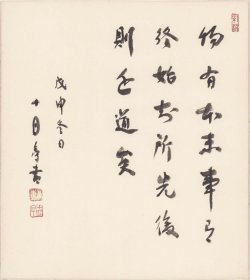 物有本末事有
終始知所先後
則近道矣
戊申冬日